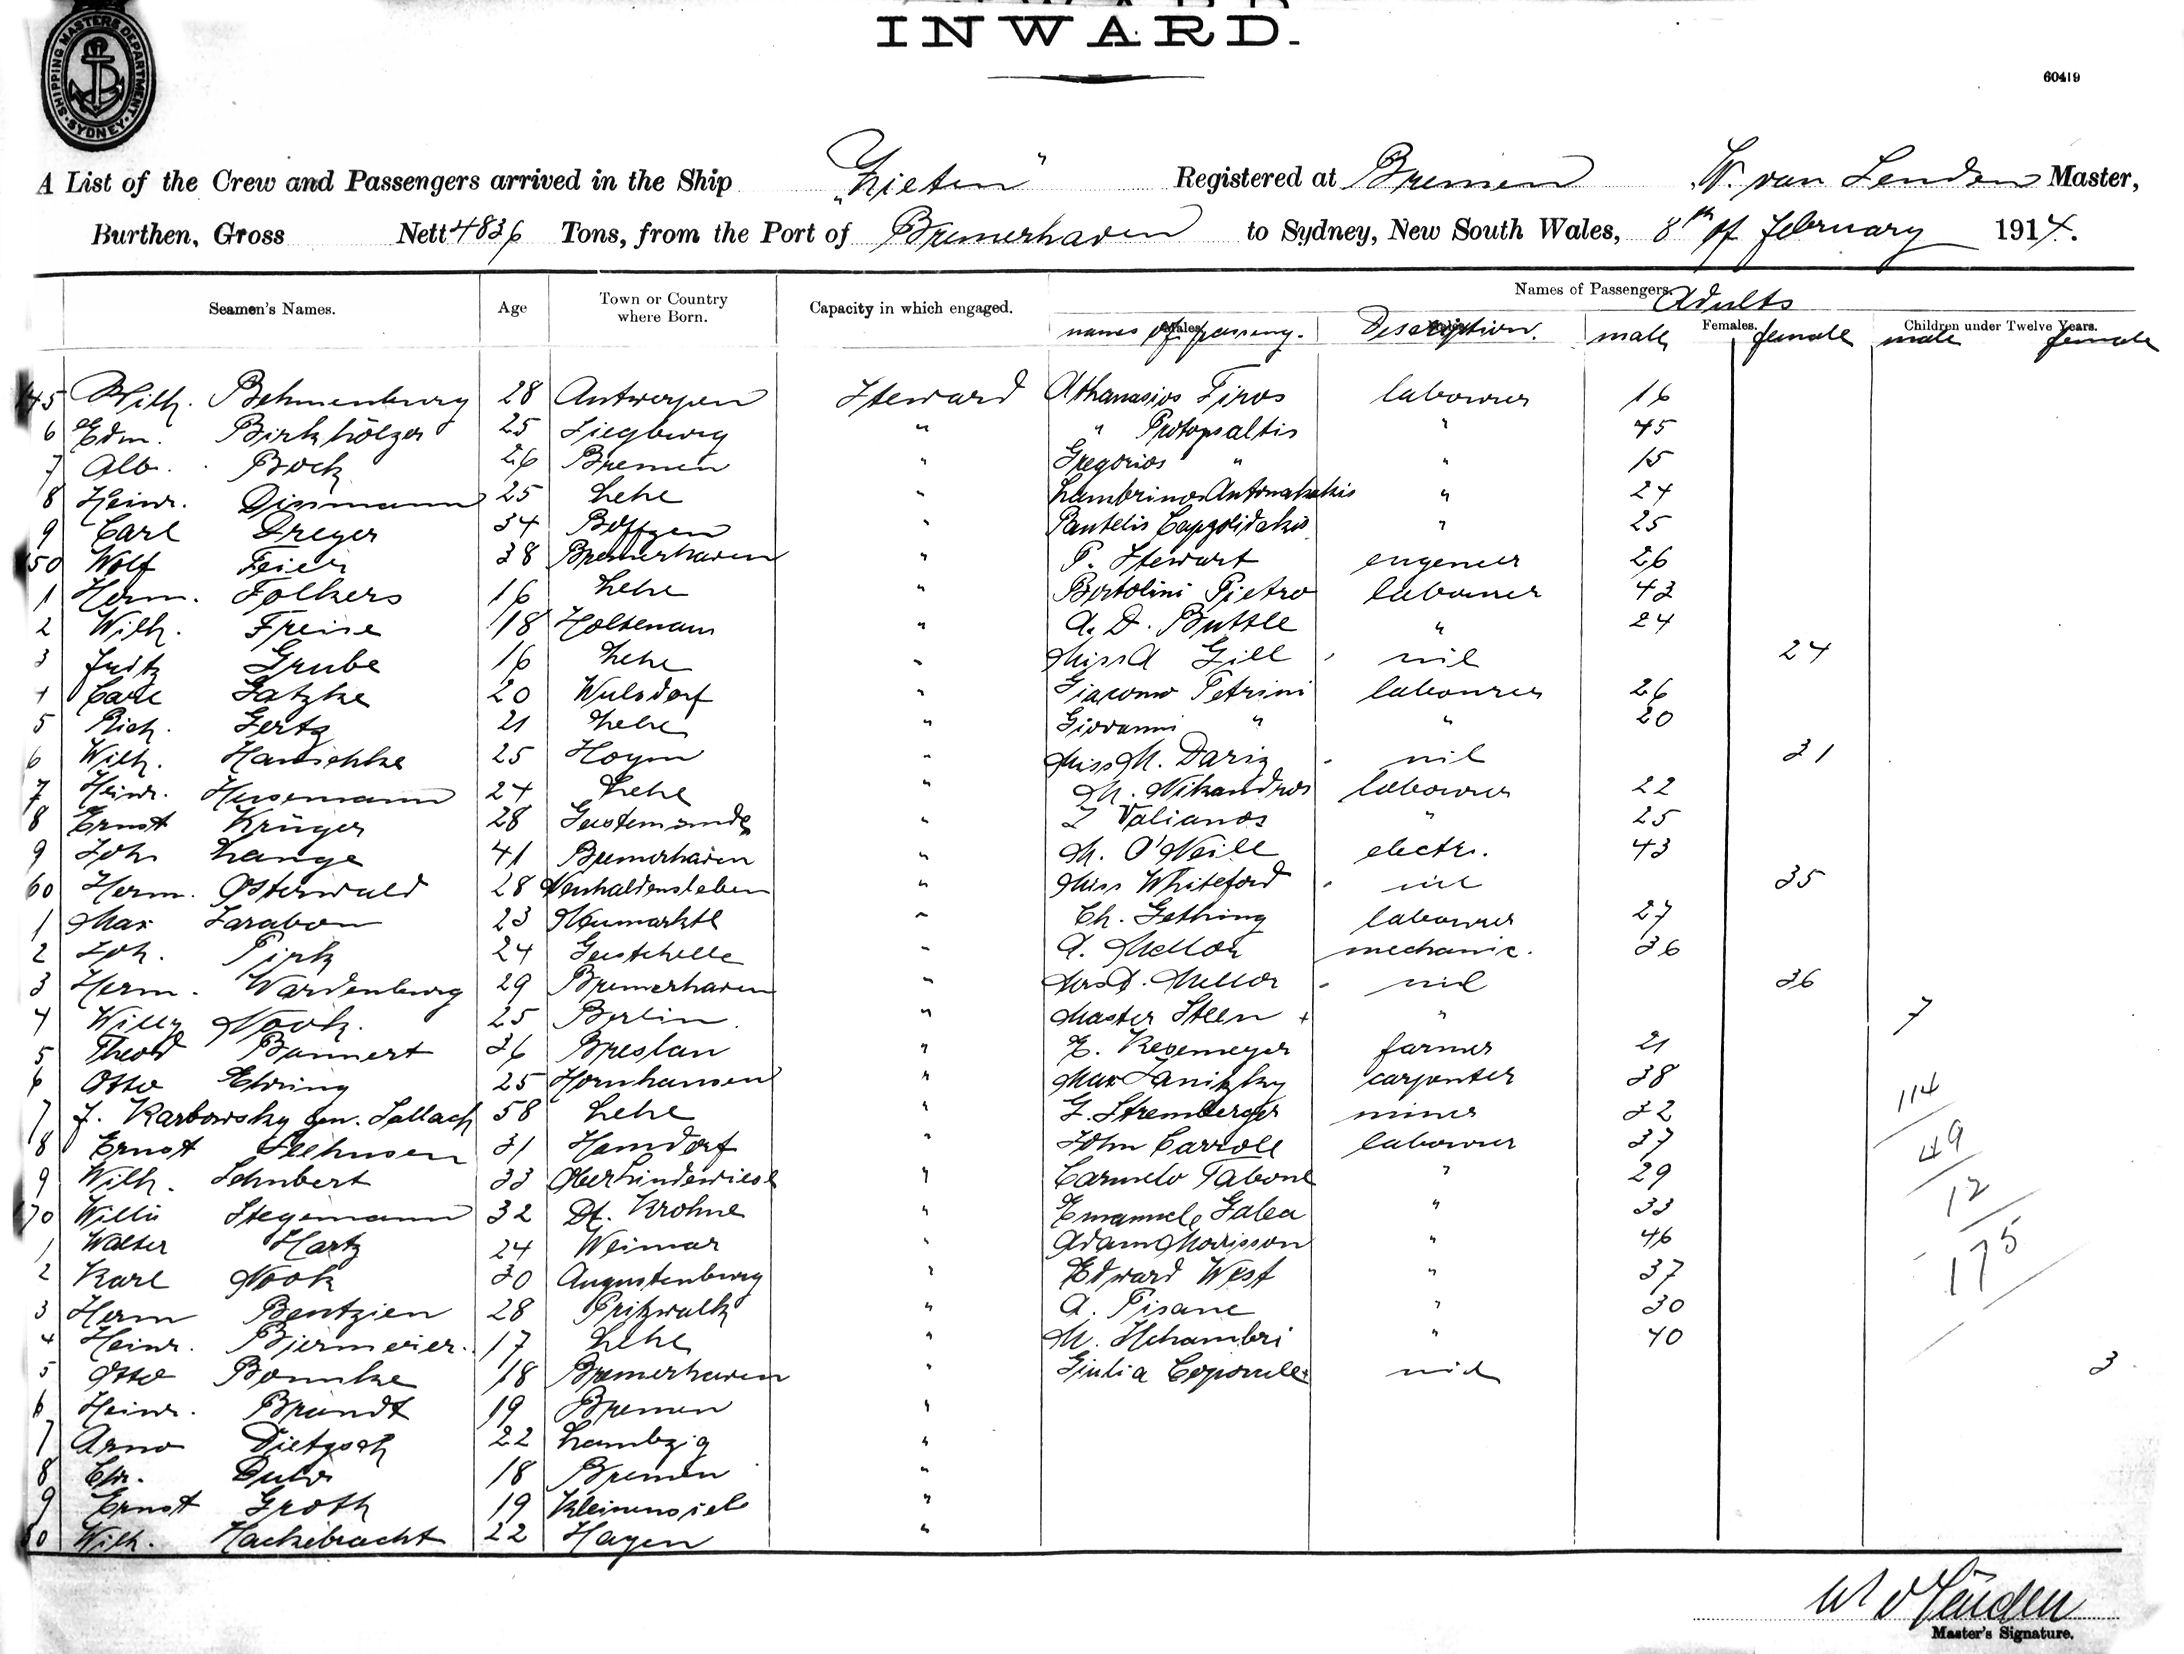 SHIPPING MASTERS DEPARTMENT
SYDNEY
INWARD.
60419
A List of the Crew and Passengers arrived in the Ship "Zieten" Registered at Bremen W. van Senden Master,
Burthen, Gross Nett 4836 Tons, from the Port of Bremerhaven to Sydney, New South Wales, 8th of february 1914.
Seamen's Names. Age Town or Country where Born. Capacity in which engaged. Names of Passengers. Adults
Males. Females. Children under Twelve Years.
names of passeng. Description. male female male female
45 Wilh. Behmenburg 28 Antwerpen Steward Athanasios Firos labourer 16
6 Edm. Birkhölzer 25 Siegburg " " Protopsaltis " 45
7 Alb. Bock 26 Bremen " Gregorios " " 15
8 Heinr. Dinsmann 25 Lehe " Lambrinos " 24
9 Carl Dreyer 34 " Pantelis " 25
50 Wolf Feier 38 Bremerhaven " P. Stewart engeneer 26
1 Herm. Folkers 16 Lehe " Bertolini Pietro labourer 43
2 Wilh. Freise 18 Holtenau " A. D. Buttle " 24
3 Fritz Grube 16 Lehe " Miss A Gill nil 24
4 Carl Gatzke 20 Wulsdorf " Giacomo Petrini labourer 26
5 Rich. Gertz 21 Lehe " Giovanni " " 20
6 Wilh. Hanschke 25 Hoym " Miss M. nil 31
7 Heinr. Husemann 24 Lehe " M. Nikandros labourer 22
8 Ernst Krüger 28 Geestemünde " Valianos " 25
9 Joh Lange 41 Bremerhaven " M. O'Neill electr. 43
60 Herm. Osterwald 28 Neuhaldensleben " Miss Whiteford nil 35
1 Max Sarabon 23 Neumarktl " Ch. Gething labourer 27
2 Joh. Pirk 24 " A. Mellor mechanic. 36
3 Herm. Wardenburg 29 Bremerhaven " Mrs D. Mellor nil 36
4 Willy Nook. 25 Berlin " Master Steen + " 7
5 Theod Bannert 36 Breslau " E. Regemeyer farmer 21
6 Otto Ehring 25 Hornhausen " Max Janitzky carpenter 38
7 J. Karbowsky gen. Sallach 58 Lehe " G. Stremberger miner 32
8 Ernst Seehusen 31 Hamdorf " John Carroll labourer 37
9 Wilh. Schubert 33 Oberlindewiese " Carmelo Tabone " 29
70 Willi Stegemann 32 Dt. Krohne " Emanuele Galea " 33
1 Walter Hartz 24 Weimar " Adam Morisson " 46
2 Karl Nook 30 Augustenburg " Edward West " 37
3 Herm Bentzien 28 Pritzwalk " A. Pisane " 30
4 Heinr. Biermeier. 17 Lehe " M. Schambri " 40
5 Otto Bonnke 18 Bremerhaven " Giulia nil 3
6 Heinr. Brandt 19 Bremen "
7 Arno Dietzsch 22 "
8 Chr. 18 Bremen "
9 Ernst Groth 19 Kleinensiel "
80 Wilh. Hackebracht 22 Hagen "
114
49
12
175
W v Senden
Master's Signature.